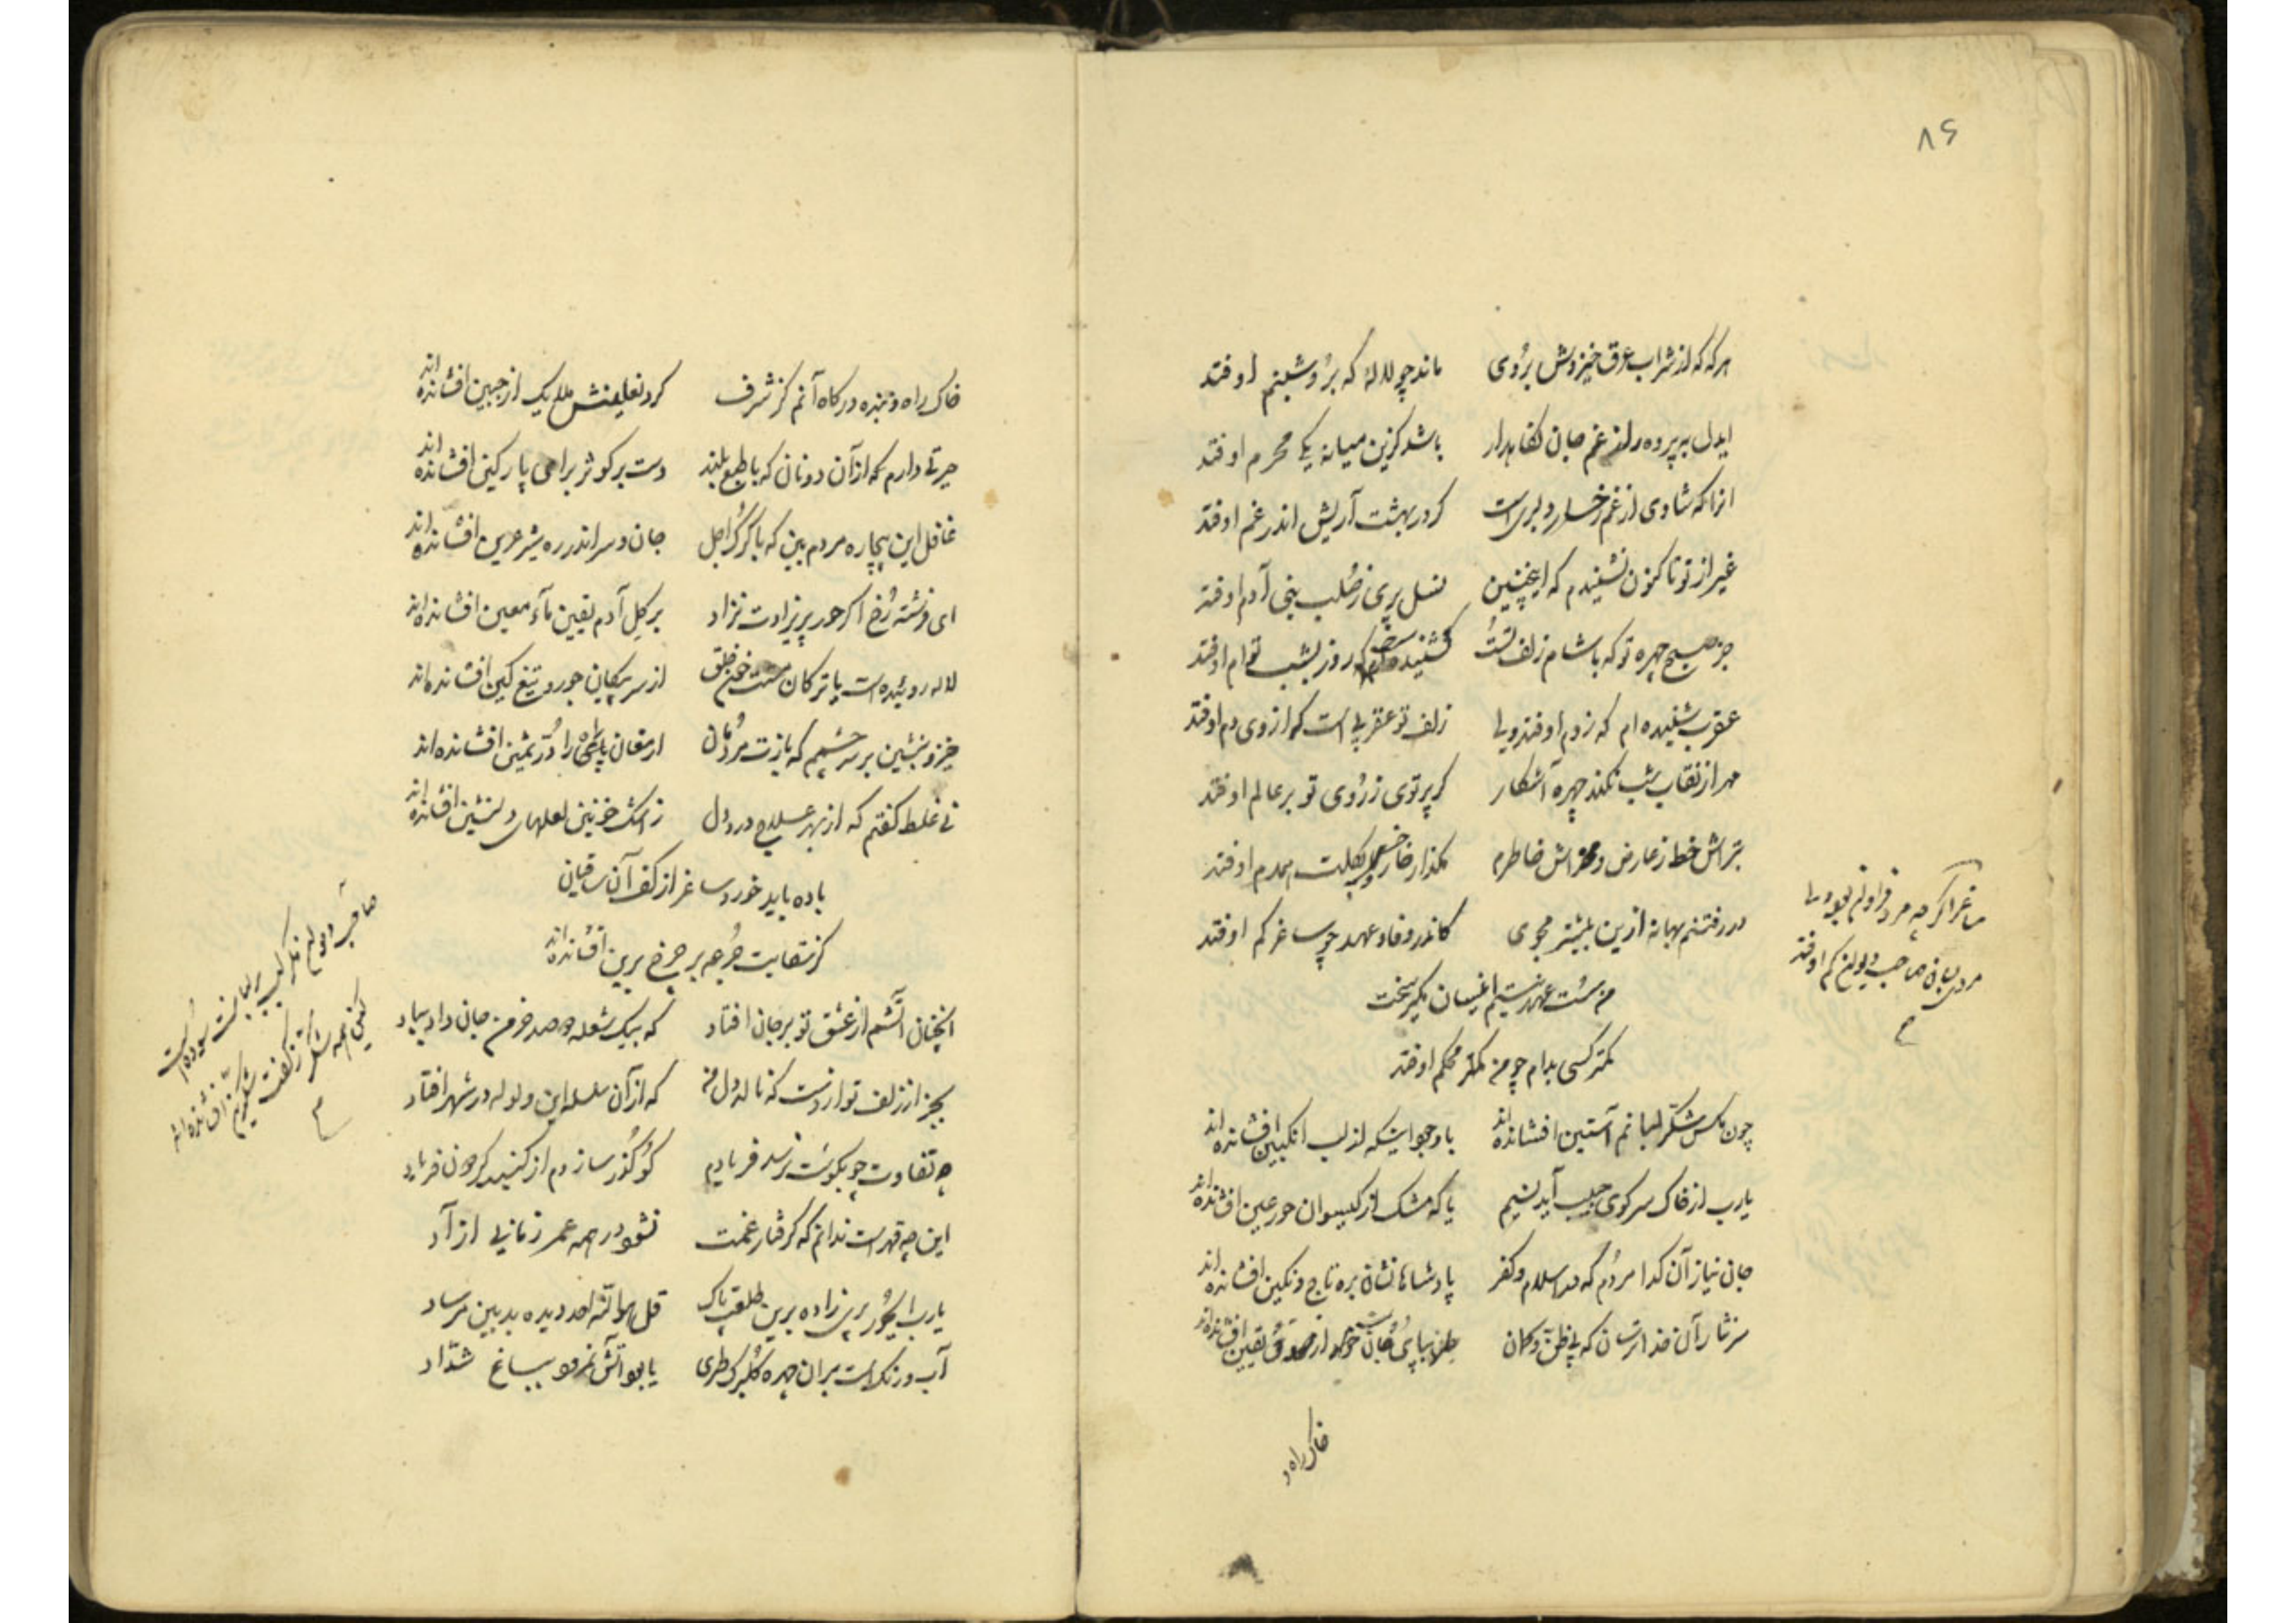 ۸۶
هرکه که از شراب عرق خیزدش بروی ماند چو لالهٔ که برو شبنم اوفتد
ایدل به پرده راز غم جان نگاهدار باشد کزین میانه یکی محرم اوفتد
انرا که شادی از غم رخسار دلبریست کر در بهشت آریش اندر غم اوفتد
غیر از تو تا کنون نشنیدم که اینچنین نسل پری ز صلب بنی آدم اوفتد
جز صبح چهره تو که با شام زلف تست نشنیده‌ام که روز بشب توام اوفتد
عقرب شنیده‌ام که ز دم اوفتد ولی زلف تو عقربی است که از وی دم اوفتد
مهر از نقاب شب نکند چهره آشکار کر پرتوی ز روی تو بر عالم اوفتد
بتراش خط ز عارض و مخراش خاطرم مگذار خار و خس بگلت همدم اوفتد
در رفتنم بهانه ازین بیشتر مجوی کاندر وفا و عهد چو ساغر کم اوفتد
من سست عهد نیستم اینسان مگیر سخت
کمتر کسی بدام چو من محکم اوفتد
ساغر اگر چه مرد فراوان بود ولی
مردی بسان صاحب دیوان کم اوفتد
چون مکس شکر لبانم آستین افشانده‌اند با وجود اینکه از لب انکبین افشانده‌اند
یارب از خاک سر کوی حبیب آید نسیم یا که مشک از کیسوان حور عین افشانده‌اند
جان نیاز آن کدا مردم که در اسلام و کفر پادشاهانشان بره تاج و نکین افشانده‌اند
سر نثار آن خدا ترسان که بی ظن و کمان خلق بپای جان خود از صدق یقین افشانده‌اند
خاک راه و
خاک راه و بنده درکاه آنم کز شرف کرد نعلینش ملایک از جبین افشانده‌اند
حیرتی دارم که از آن دونان که با طبع بلند دست بر کوثر برای پارکین افشانده‌اند
غافل این بیچاره مردم بین که با کرک اجل جان و سر اندر ره شیر عرین افشانده‌اند
ای فرشته رخ اکر حور پریزادت نزاد بر کل آدم یقین مآء معین افشانده‌اند
لاله روئیده است یا ترکان مست خون خلق از سر پیکان جور و تیغ کین افشانده‌اند
خیز و بنشین بر سر چشمم که بازت مردمان ارمغان پای را در ثمین افشانده‌اند
نی غلط کفتم که از بهر علاج درد دل ز اشک خونین لعلهای دلنشین افشانده‌اند
باده باید خورد ساغر از کف آن ساقیان
کز سقایت جرعه بر چرخ برین افشانده‌اند
آنچنان آتشم از عشق تو بر جان افتاد که بیک شعله دو صد خرمن جان داد بباد
بجز از زلف تو از دست که نالد دل من که از آن سلسله این ولوله در شهر افتاد
چه تفاوت چو بکوشت نرسد فریادم کو کذر سازدم از کنبد کردون فریاد
این چه قهر است ندانم که کرفتار غمت نشود در همه عمر زمانی آزاد
یارب این حور پری زاده برین طلعت پاک قل هو الله احد دیده بد بین مرساد
آب و رنک است بر ان چهره کلبرک طری یا بود آتش نمرود بباغ شداد